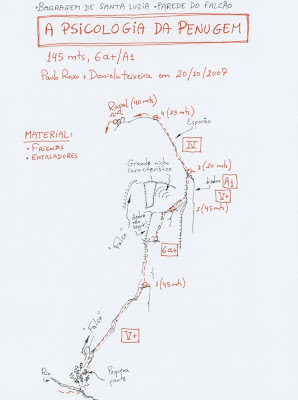 • BARRAGEM DE SANTA LUZIA • PAREDE DO FALCÃO
A PSICOLOGIA DA PENUGEM
145 mts, 6a+/A1
Paulo Roxo + Daniela Teixeira em 20/10/2007
Rapel (40 mts)
4 (35 mts)
Esporão
MATERIAL:
• FRIENDS
• ENTALADORES
IV
Grande nicho
característico
3 (20 mts)
diedro
A1
V+
2 (45 mts)
diedro
não
seguir
"Falco"
6a+
1 (45 mts)
"Falco"
V+
Rio
Pequena
ponte